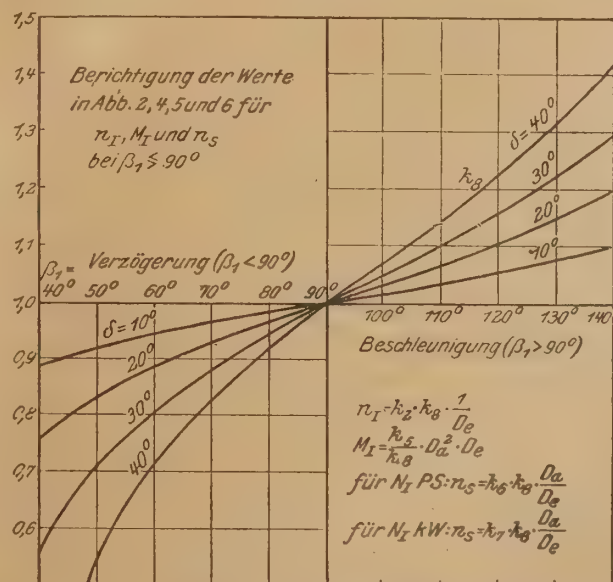 1,5
1,4
1,3
1,2
1,1
1,0
0,9
0,8
0,7
0,6
Berichtigung der Werte
in Abb. 2, 4, 5 und 6 für
n_I, M_I und n_S
bei β₁ ≦ 90°
k₈
δ=40°
30°
20°
10°
β₁= Verzögerung (β₁<90°)
40° 50° 60° 70° 80° 90° 100° 110° 120° 130° 140°
δ=10°
20°
30°
40°
Beschleunigung (β₁>90°)
n_I=k₂·k₈·1/D_e
M_I=k₅/k₈·D_a²·D_e
für N_I PS: n_S=k₆·k₈·D_a/D_e
für N_I kW: n_S=k₇·k₈·D_a/D_e